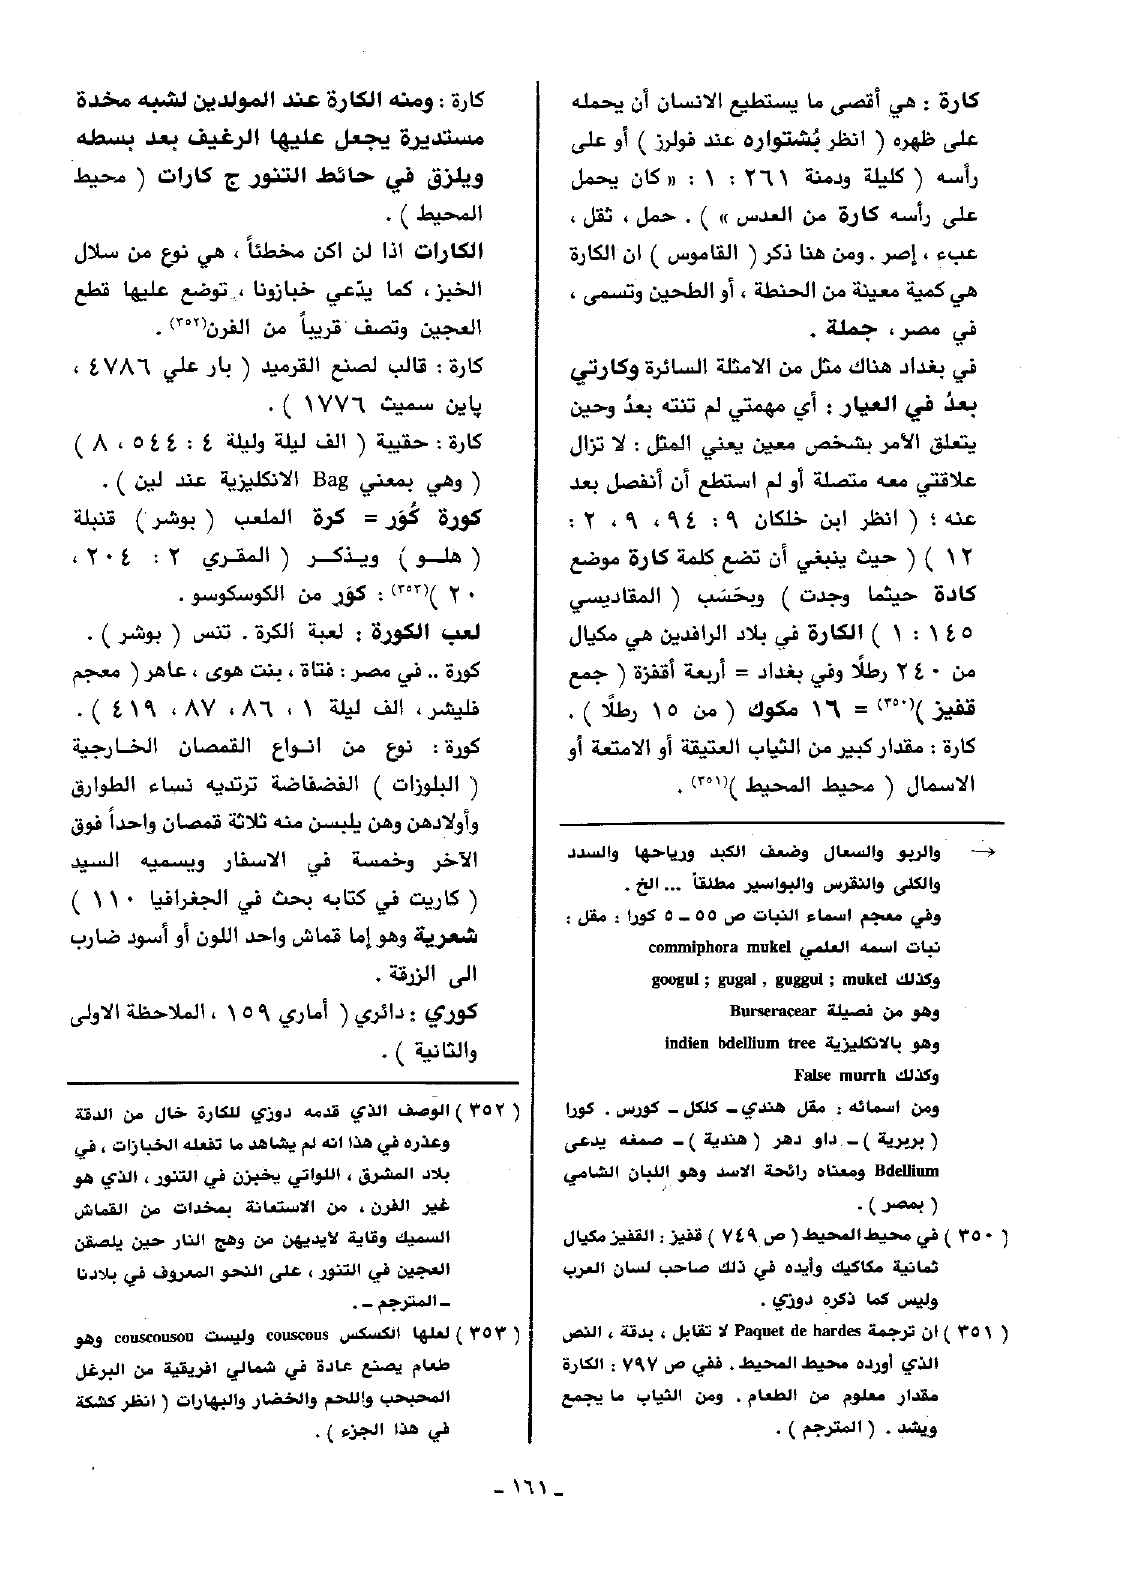 كارة : هي أقصى ما يستطيع الانسان أن يحمله
على ظهره ( انظر بُشتواره عند فولرز ) أو على
رأسه ( كليلة ودمنة ٢٦١ : ١ : « كان يحمل
على رأسه كارة من العدس » ) . حمل ، ثقل ،
عبء ، إصر . ومن هنا ذكر ( القاموس ) ان الكارة
هي كمية معينة من الحنطة ، أو الطحين وتسمى ،
في مصر ، جملة .
في بغداد هناك مثل من الامثلة السائرة وكارتي
بعدُ في العيار : أي مهمتي لم تنته بعدُ وحين
يتعلق الأمر بشخص معين يعني المثل : لا تزال
علاقتي معه متصلة أو لم استطع أن أنفصل بعد
عنه ؛ ( انظر ابن خلكان ٩ : ٩٤ ، ٩ ، ٢ :
١٢ ) ( حيث ينبغي أن تضع كلمة كارة موضع
كادة حيثما وجدت ) وبحَسَب ( المقاديسي
١٤٥ : ١ ) الكارة في بلاد الرافدين هي مكيال
من ٢٤٠ رطلًا وفي بغداد = أربعة أقفزة ( جمع
قفيز )(٣٥٠) = ١٦ مكوك ( من ١٥ رطلًا ) .
كارة : مقدار كبير من الثياب العتيقة أو الامتعة أو
الاسمال ( محيط المحيط )(٣٥١) .
← والربو والسعال وضعف الكبد ورياحها والسدد
والكلى والنقرس والبواسير مطلقاً ... الخ .
وفي معجم اسماء النبات ص ٥٥ - ٥ كورا : مقل :
نبات اسمه العلمي commiphora mukel
وكذلك googul ; gugal , guggul ; mukel
وهو من فصيلة Burseracear
وهو بالانكليزية indien bdellium tree
وكذلك False murrh
ومن اسمائه : مقل هندي - كلكل - كورس . كورا
( بربرية ) - داو دهر ( هندية ) - صمغه يدعى
Bdellium ومعناه رائحة الاسد وهو اللبان الشامي
( بمصر ) .
( ٣٥٠ ) في محيط المحيط ( ص ٧٤٩ ) قفيز : القفيز مكيال
ثمانية مكاكيك وأيده في ذلك صاحب لسان العرب
وليس كما ذكره دوزي .
( ٣٥١ ) ان ترجمة Paquet de hardes لا تقابل ، بدقة ، النص
الذي أورده محيط المحيط . ففي ص ٧٩٧ : الكارة
مقدار معلوم من الطعام . ومن الثياب ما يجمع
ويشد . ( المترجم ) .
كارة : ومنه الكارة عند المولدين لشبه مخدة
مستديرة يجعل عليها الرغيف بعد بسطه
ويلزق في حائط التنور ج كارات ( محيط
المحيط ) .
الكارات اذا لن اكن مخطئاً ، هي نوع من سلال
الخبز ، كما يدّعي خبازونا ، توضع عليها قطع
العجين وتصف قريباً من الفرن(٣٥٢) .
كارة : قالب لصنع القرميد ( بار علي ٤٧٨٦ ،
پاين سميث ١٧٧٦ ) .
كارة : حقيبة ( الف ليلة وليلة ٤ : ٥٤٤ ، ٨ )
( وهي بمعني Bag الانكليزية عند لين ) .
كورة كُوَر = كرة الملعب ( بوشر ) قنبلة
( هلو ) ويذكر ( المقري ٢ : ٢٠٤ ،
٢٠ )(٣٥٣) : كوَر من الكوسكوسو .
لعب الكورة : لعبة الكرة . تنس ( بوشر ) .
كورة .. في مصر : فتاة ، بنت هوى ، عاهر ( معجم
فليشر ، الف ليلة ١ ، ٨٦ ، ٨٧ ، ٤١٩ ) .
كورة : نوع من انواع القمصان الخارجية
( البلوزات ) الفضفاضة ترتديه نساء الطوارق
وأولادهن وهن يلبسن منه ثلاثة قمصان واحداً فوق
الآخر وخمسة في الاسفار ويسميه السيد
( كاريت في كتابه بحث في الجغرافيا ١١٠ )
شعرية وهو إما قماش واحد اللون أو أسود ضارب
الى الزرقة .
كوري : دائري ( أماري ١٥٩ ، الملاحظة الاولى
والثانية ) .
( ٣٥٢ ) الوصف الذي قدمه دوزي للكارة خال من الدقة
وعذره في هذا انه لم يشاهد ما تفعله الخبازات ، في
بلاد المشرق ، اللواتي يخبزن في التنور ، الذي هو
غير الفرن ، من الاستعانة بمخدات من القماش
السميك وقاية لايديهن من وهج النار حين يلصقن
العجين في التنور ، على النحو المعروف في بلادنا
- المترجم - .
( ٣٥٣ ) لعلها الكسكس couscous وليست couscousou وهو
طعام يصنع عادة في شمالي افريقية من البرغل
المحبحب واللحم والخضار والبهارات ( انظر كشكة
في هذا الجزء ) .
- ١٦١ -